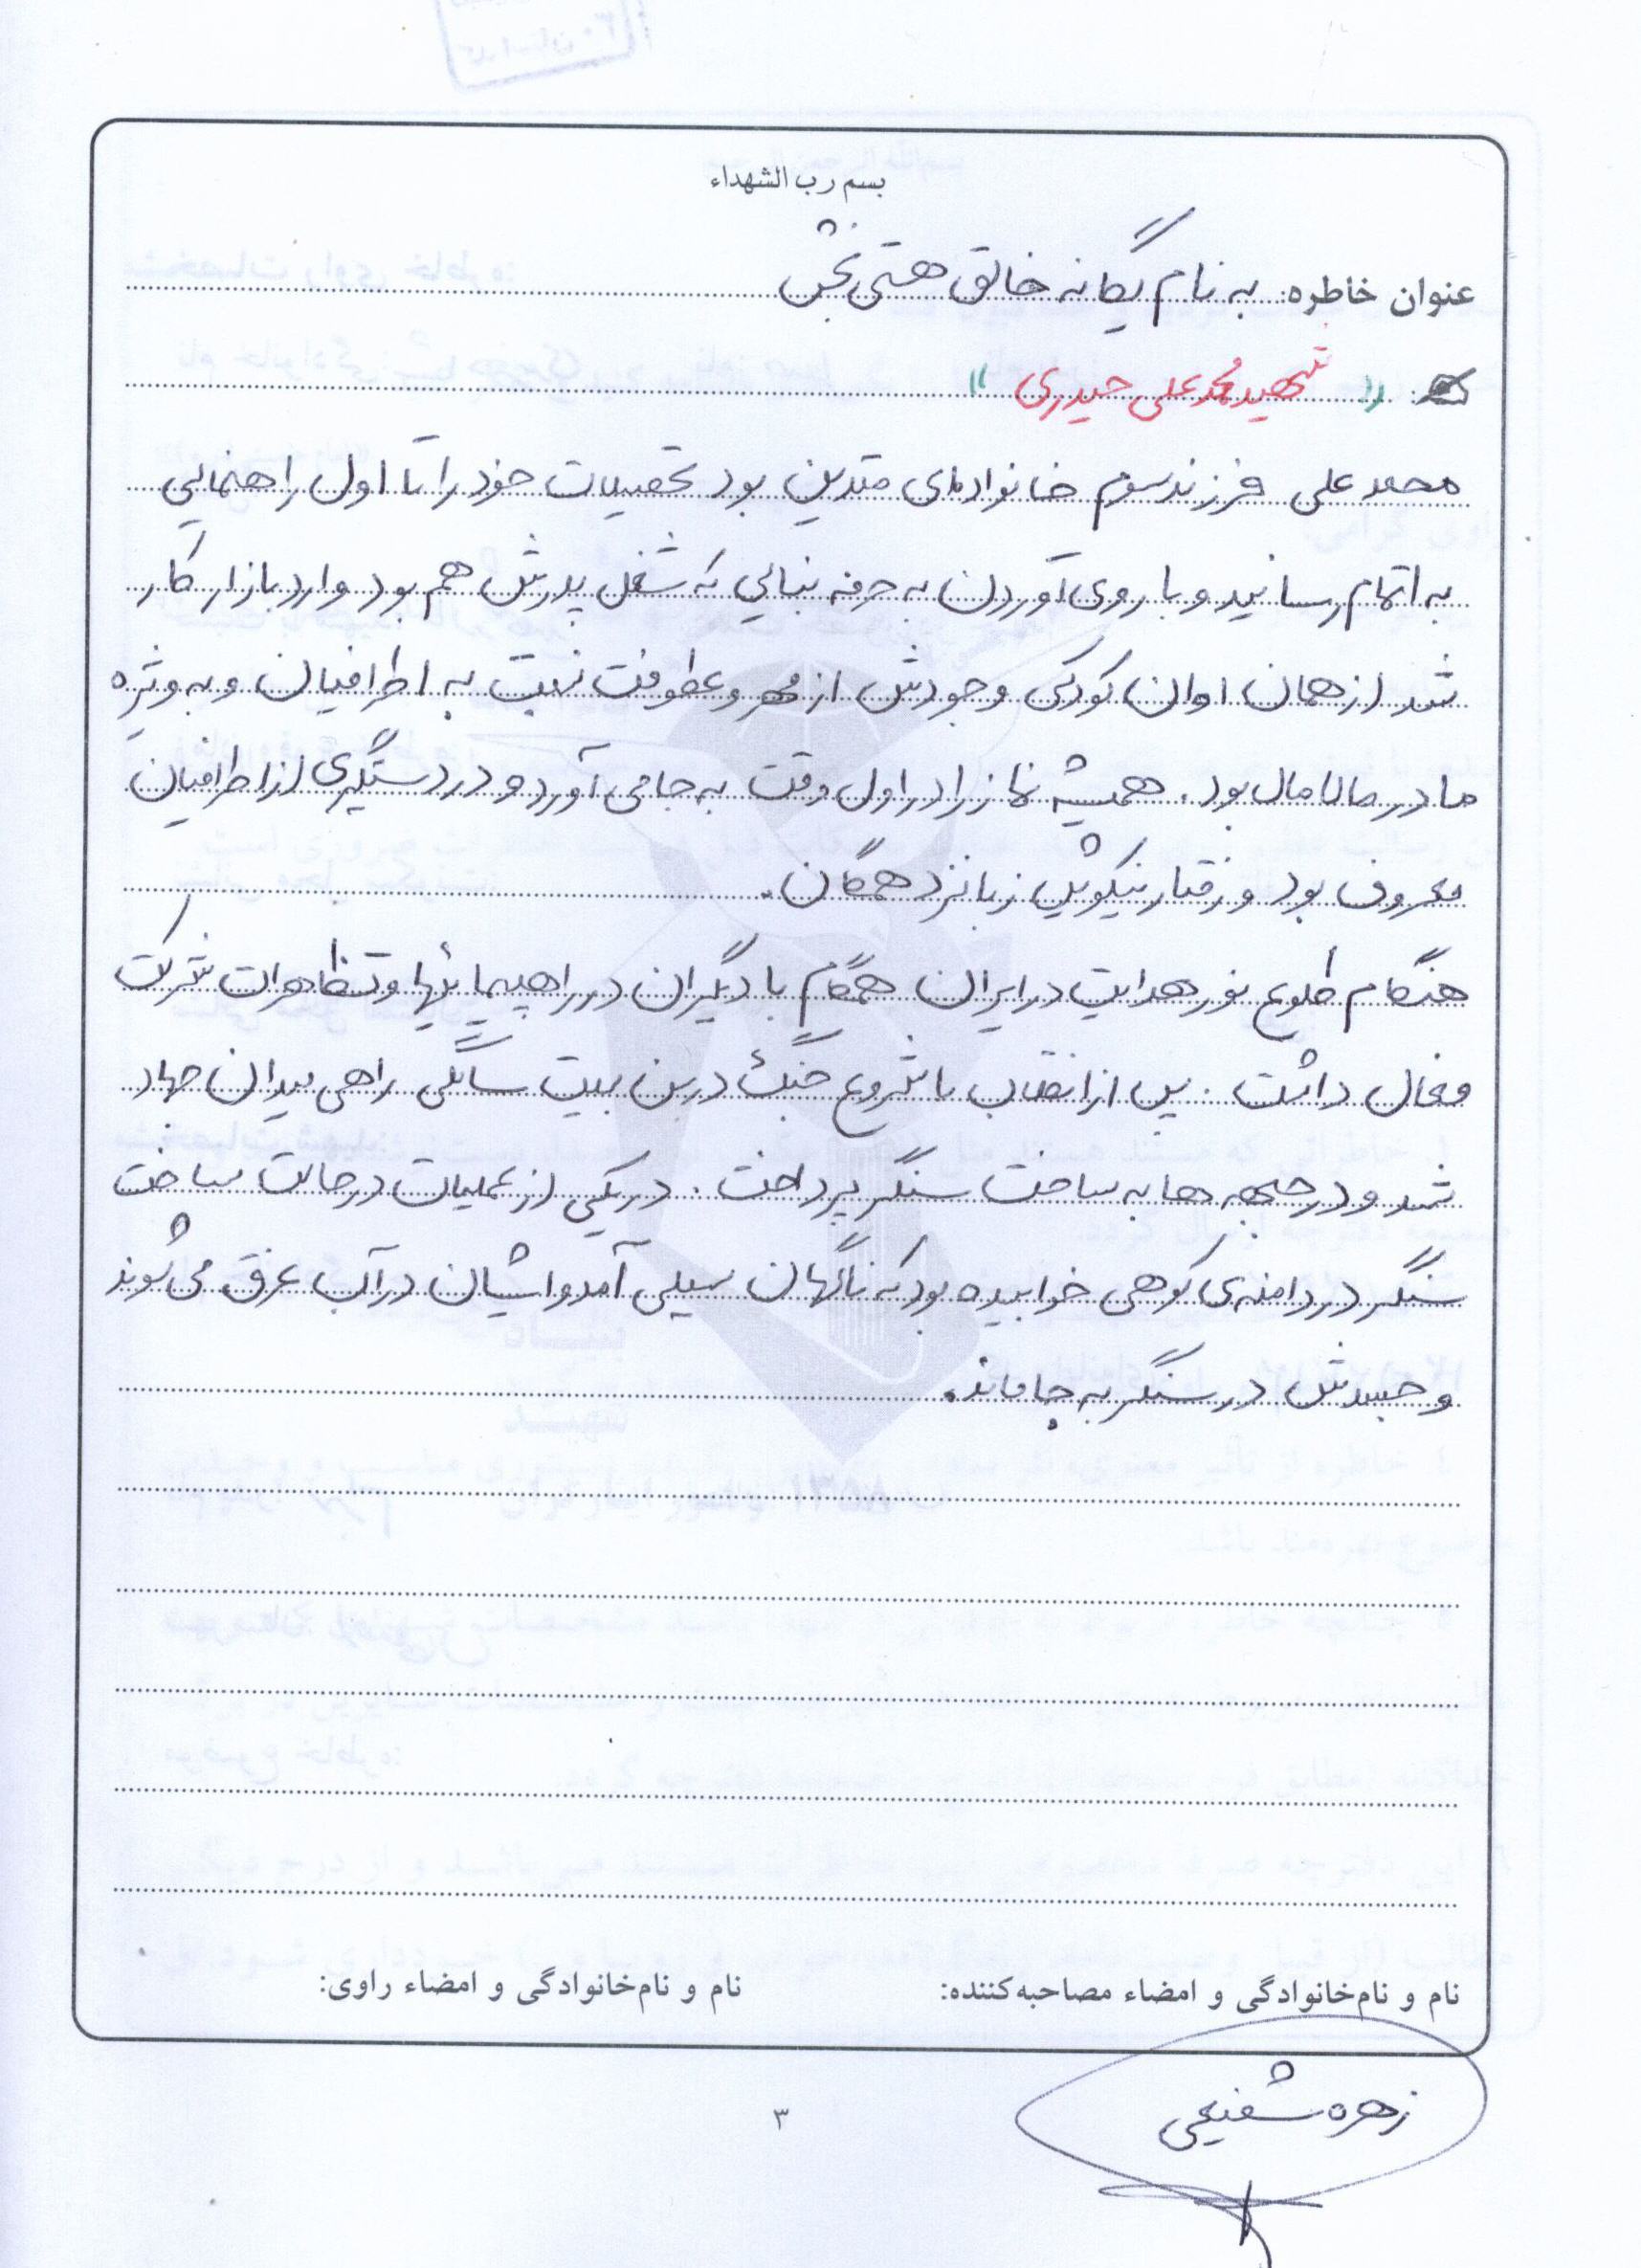 بسم رب الشهداء
عنوان خاطره: به نام یگانه خالق هستی بخش
« شهید محمد علی حیدری »
محمد علی فرزند سوم خانواده‌ای متدین بود تحصیلات خود را تا اول راهنمایی
به اتمام رسانید و با روی آوردن به حرفه بنایی که شغل پدرش هم بود وارد بازار کار
شد از همان اوان کودکی وجودش از مهر و عطوفت نسبت به اطرافیان و به ویژه
مادر مالامال بود. همیشه نماز را در اول وقت به جا می‌آورد و در دستگیری از اطرافیان
معروف بود و رفتار نیکویش زبانزد همگان.
هنگام طلوع نور هدایت در ایران همگام با دیگران در راهپیمائیها و تظاهرات شرکت
فعال داشت. پس از انقلاب با شروع جنگ در سن بیست سالگی راهی میدان جهاد
شد و در جبهه ها به ساخت سنگر پرداخت. در یکی از عملیات در حالت ساخت
سنگر در دامنه‌ی کوهی خوابیده بود که ناگهان سیلی آمد و ایشان در آب غرق می شوند
و جسدش در سنگر به جا ماند.
نام و نام‌خانوادگی و امضاء مصاحبه‌کننده: نام و نام‌خانوادگی و امضاء راوی:
زهره شفیعی
۳